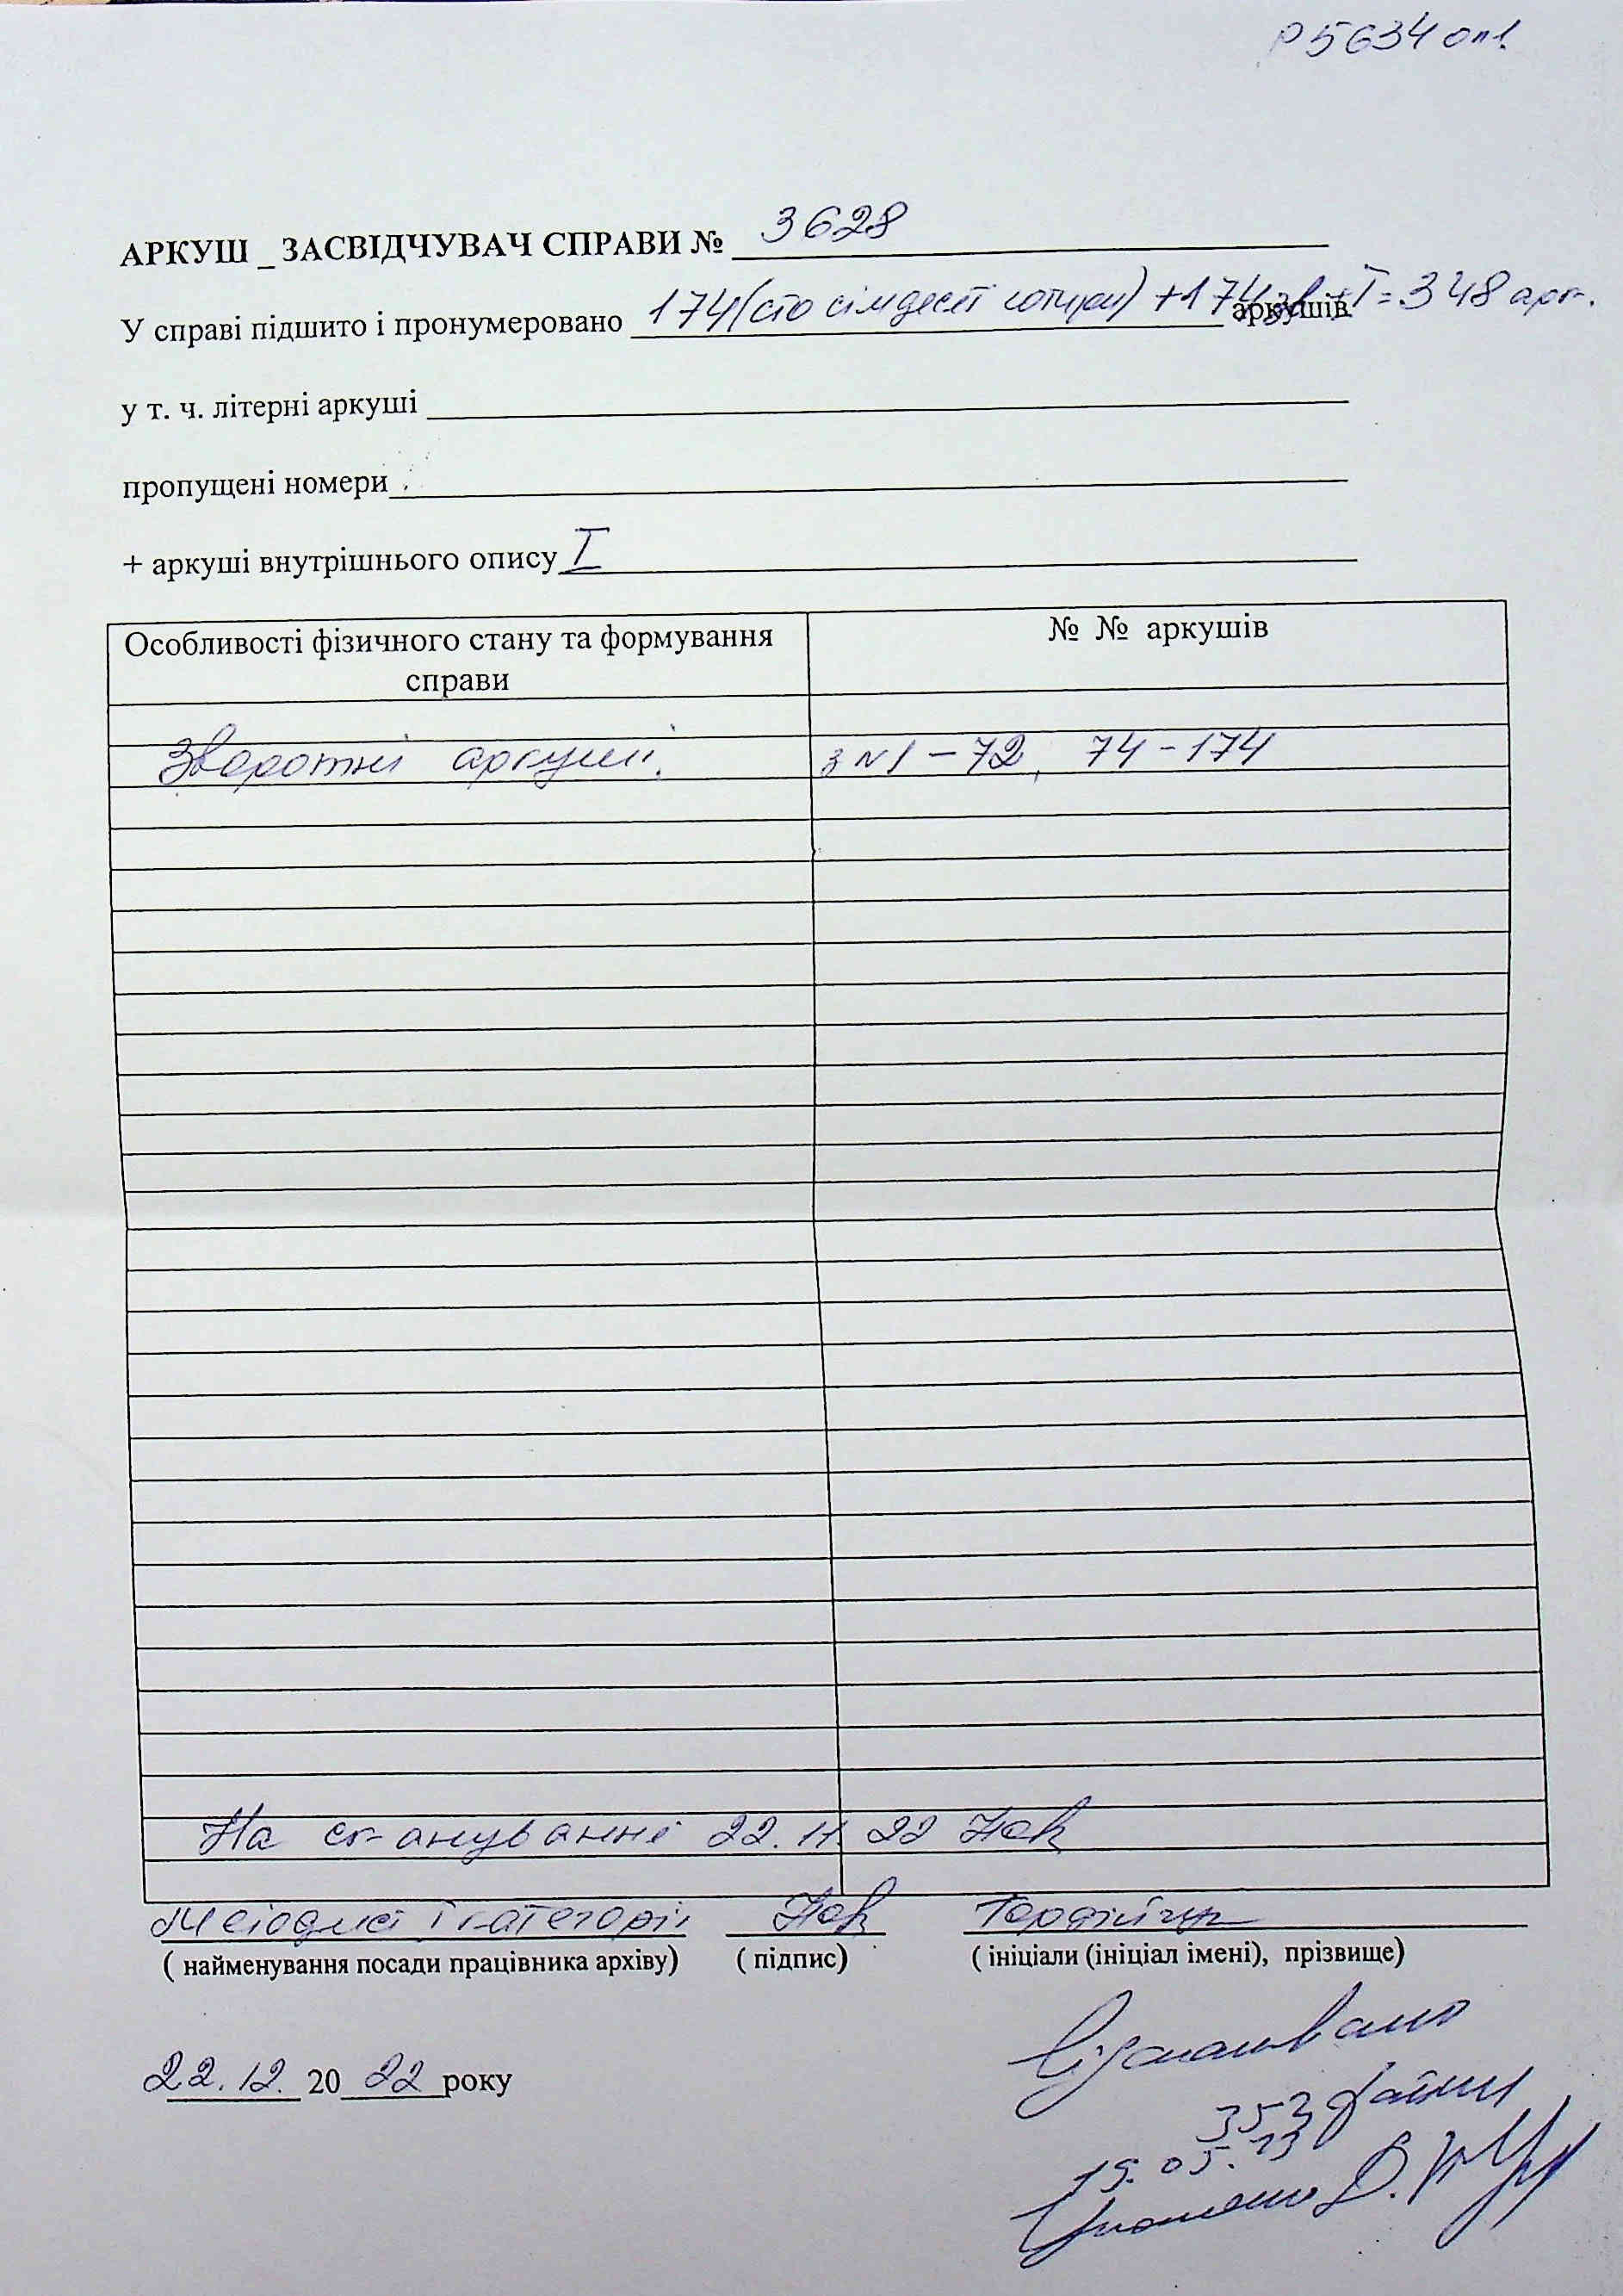 Р5634 оп1
АРКУШ _ ЗАСВІДЧУВАЧ СПРАВИ № 3628
У справі підшито і пронумеровано 174 (сто сімдесят чотири) +174 зв +I = 348 арк. аркушів
у т. ч. літерні аркуші
пропущені номери
+ аркуші внутрішнього опису I
Особливості фізичного стану та формування справи
№ № аркушів
Зворотні аркуші. з №1 – 72, 74 - 174
На скануванні 22.11.22
Методист I категорії
( найменування посади працівника архіву) ( підпис) ( ініціали (ініціал імені), прізвище)
22.12. 20 22 року
Відскановано
353 файли
19.05.23